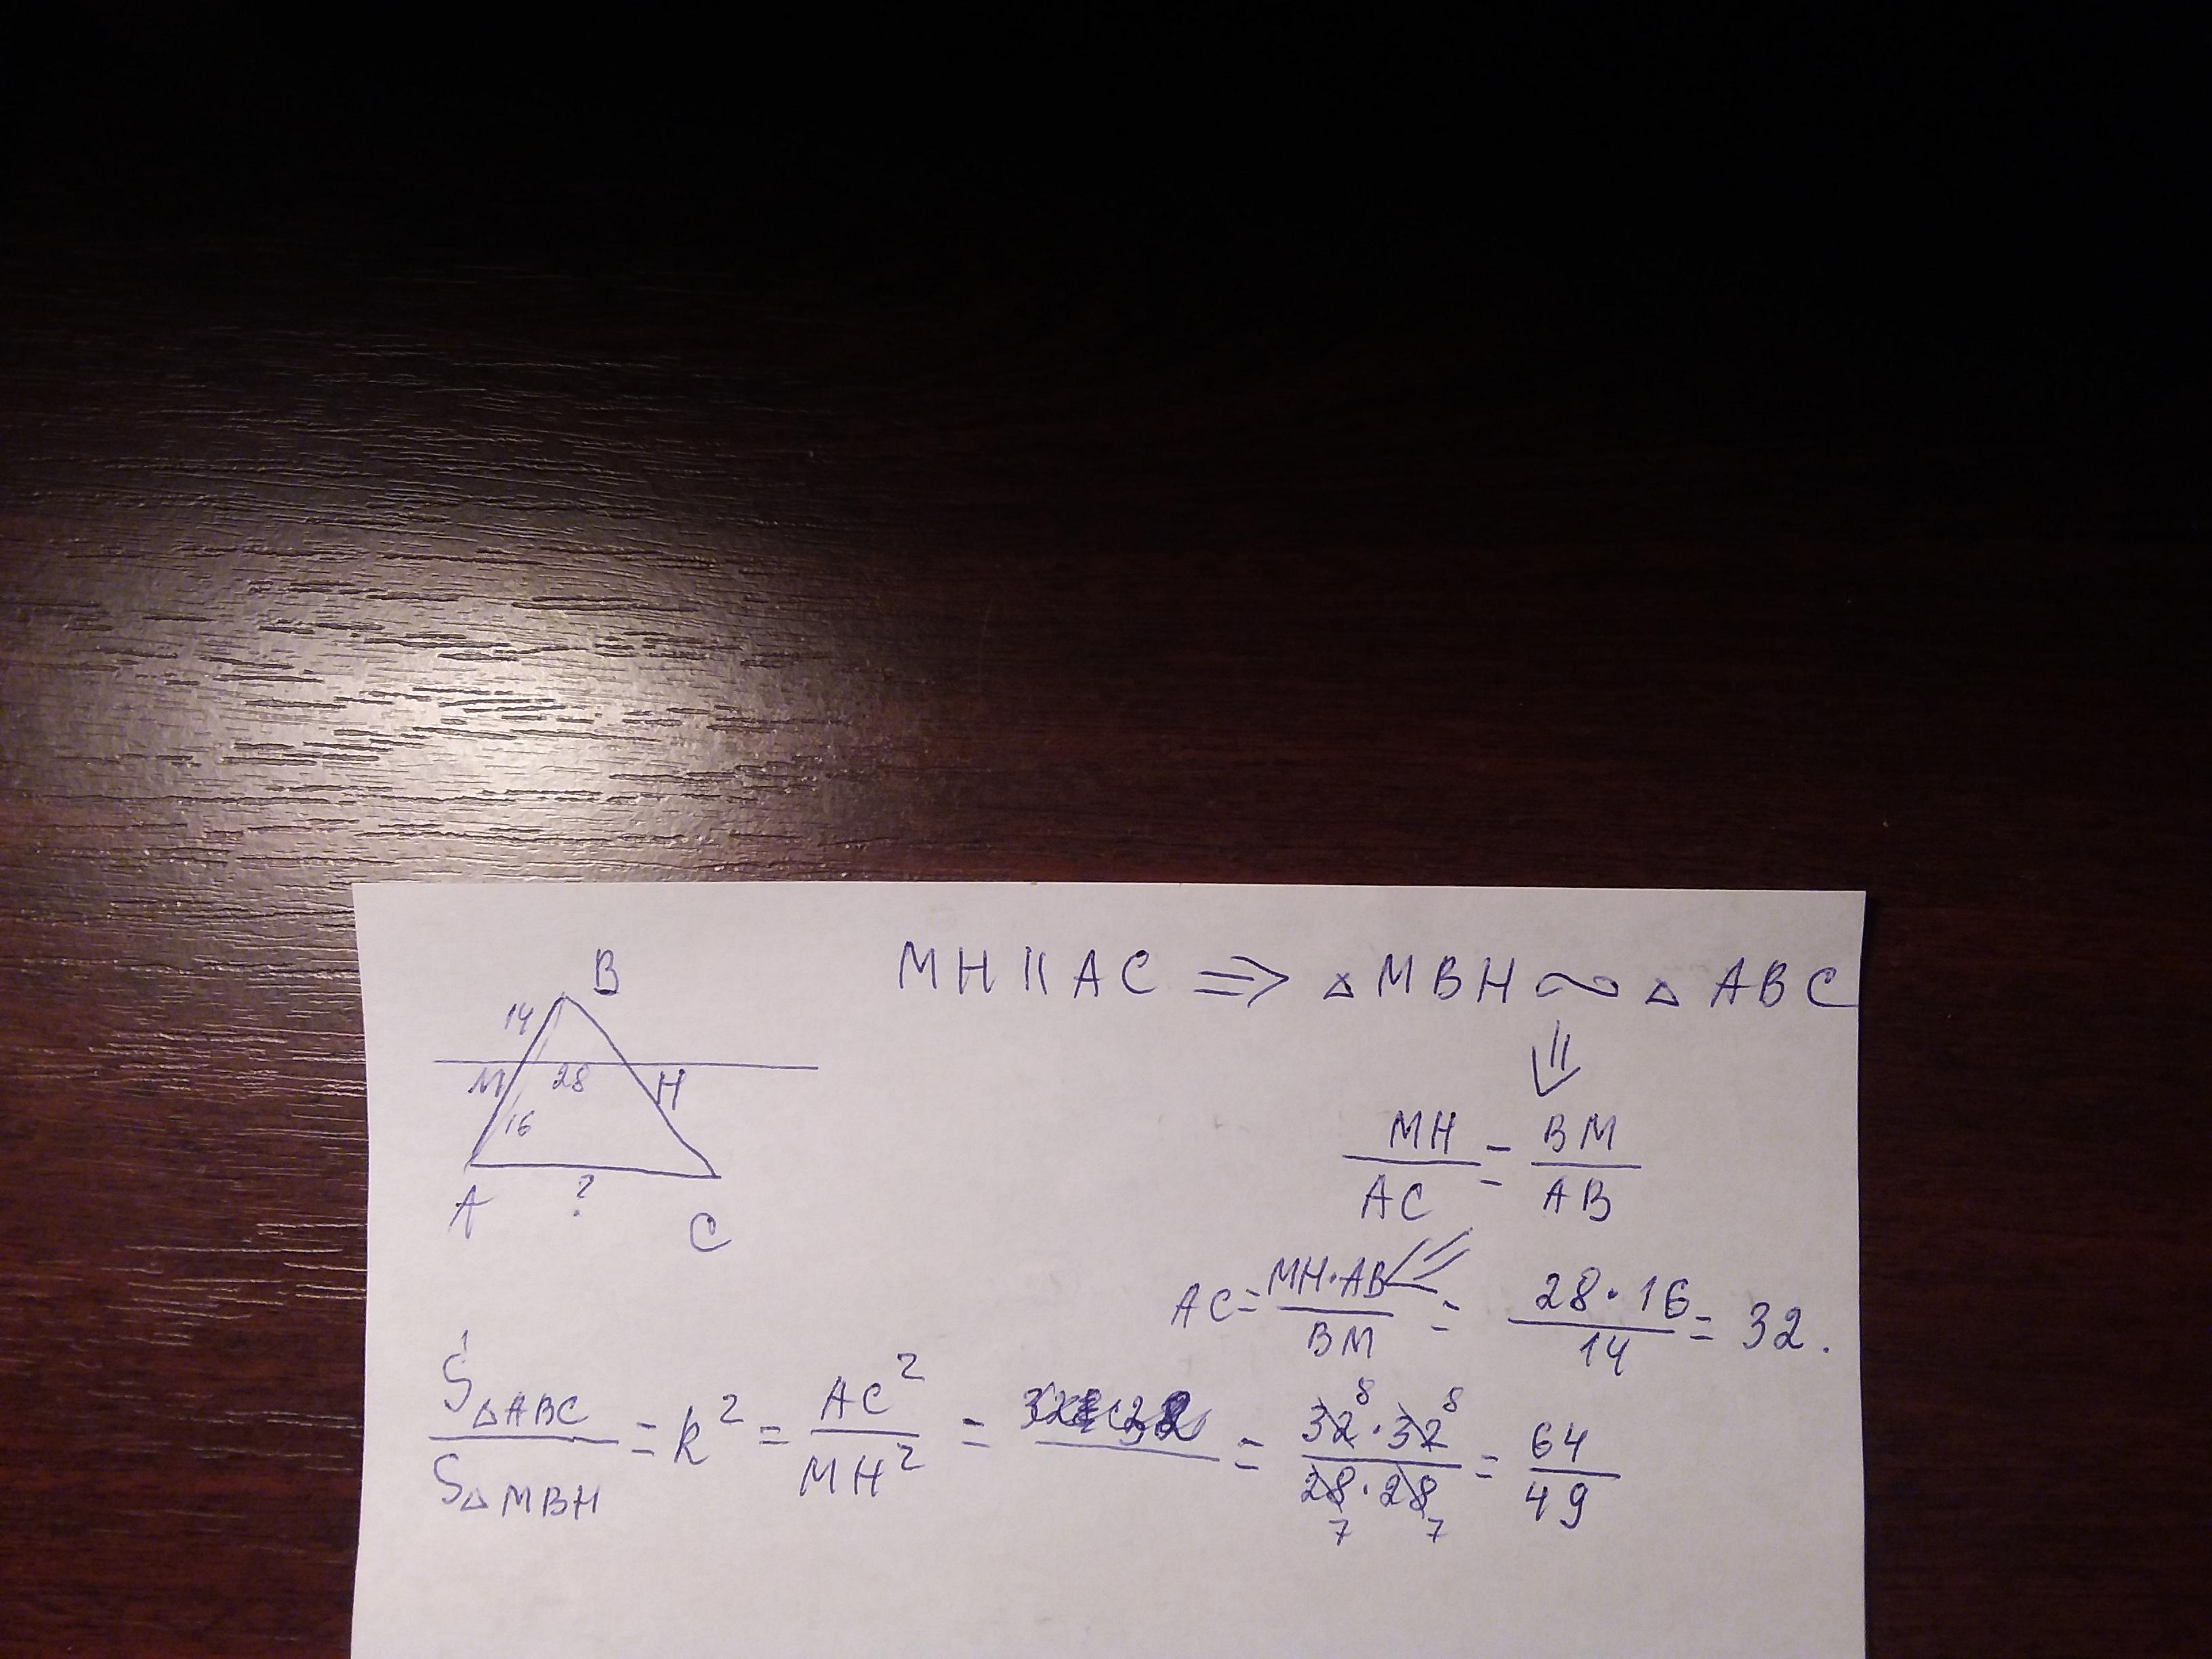 B
14
M 28 H
16
A ? C
MH || AC ⇒ △MBH ∾ △ABC
⇓
MH/AC = BM/AB
⇙
AC = MH·AB/BM = 28·16/14 = 32.
S△ABC/S△MBH = k² = AC²/MH² = = 32·32/28·28 = 64/49
8 8
7 7